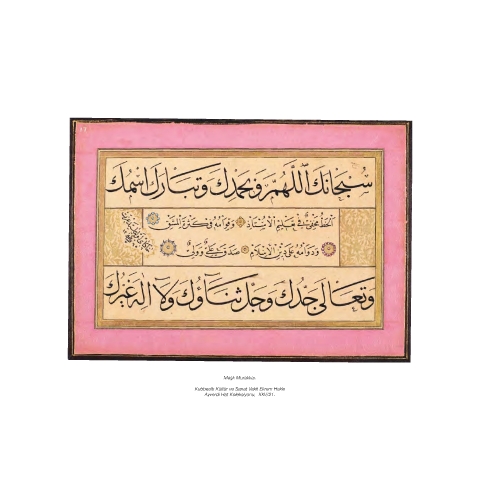 سُبْحَانَكَ اللَّهُمَّ وَبِحَمْدِكَ وَتَبَارَكَ اسْمُكَ
الخط مخفي في تعليم الأستاذ وقوامه في كثرة المشق
ودوامه على دين الإسلام صدق علي ولي
وَتَعَالَى جَدُّكَ وَجَلَّ ثَنَاؤُكَ وَلَا إِلَهَ غَيْرُكَ
Kubbealtı Kültür ve Sanat Vakfı Ekrem Hakkı
Ayverdi Hat Koleksiyonu,